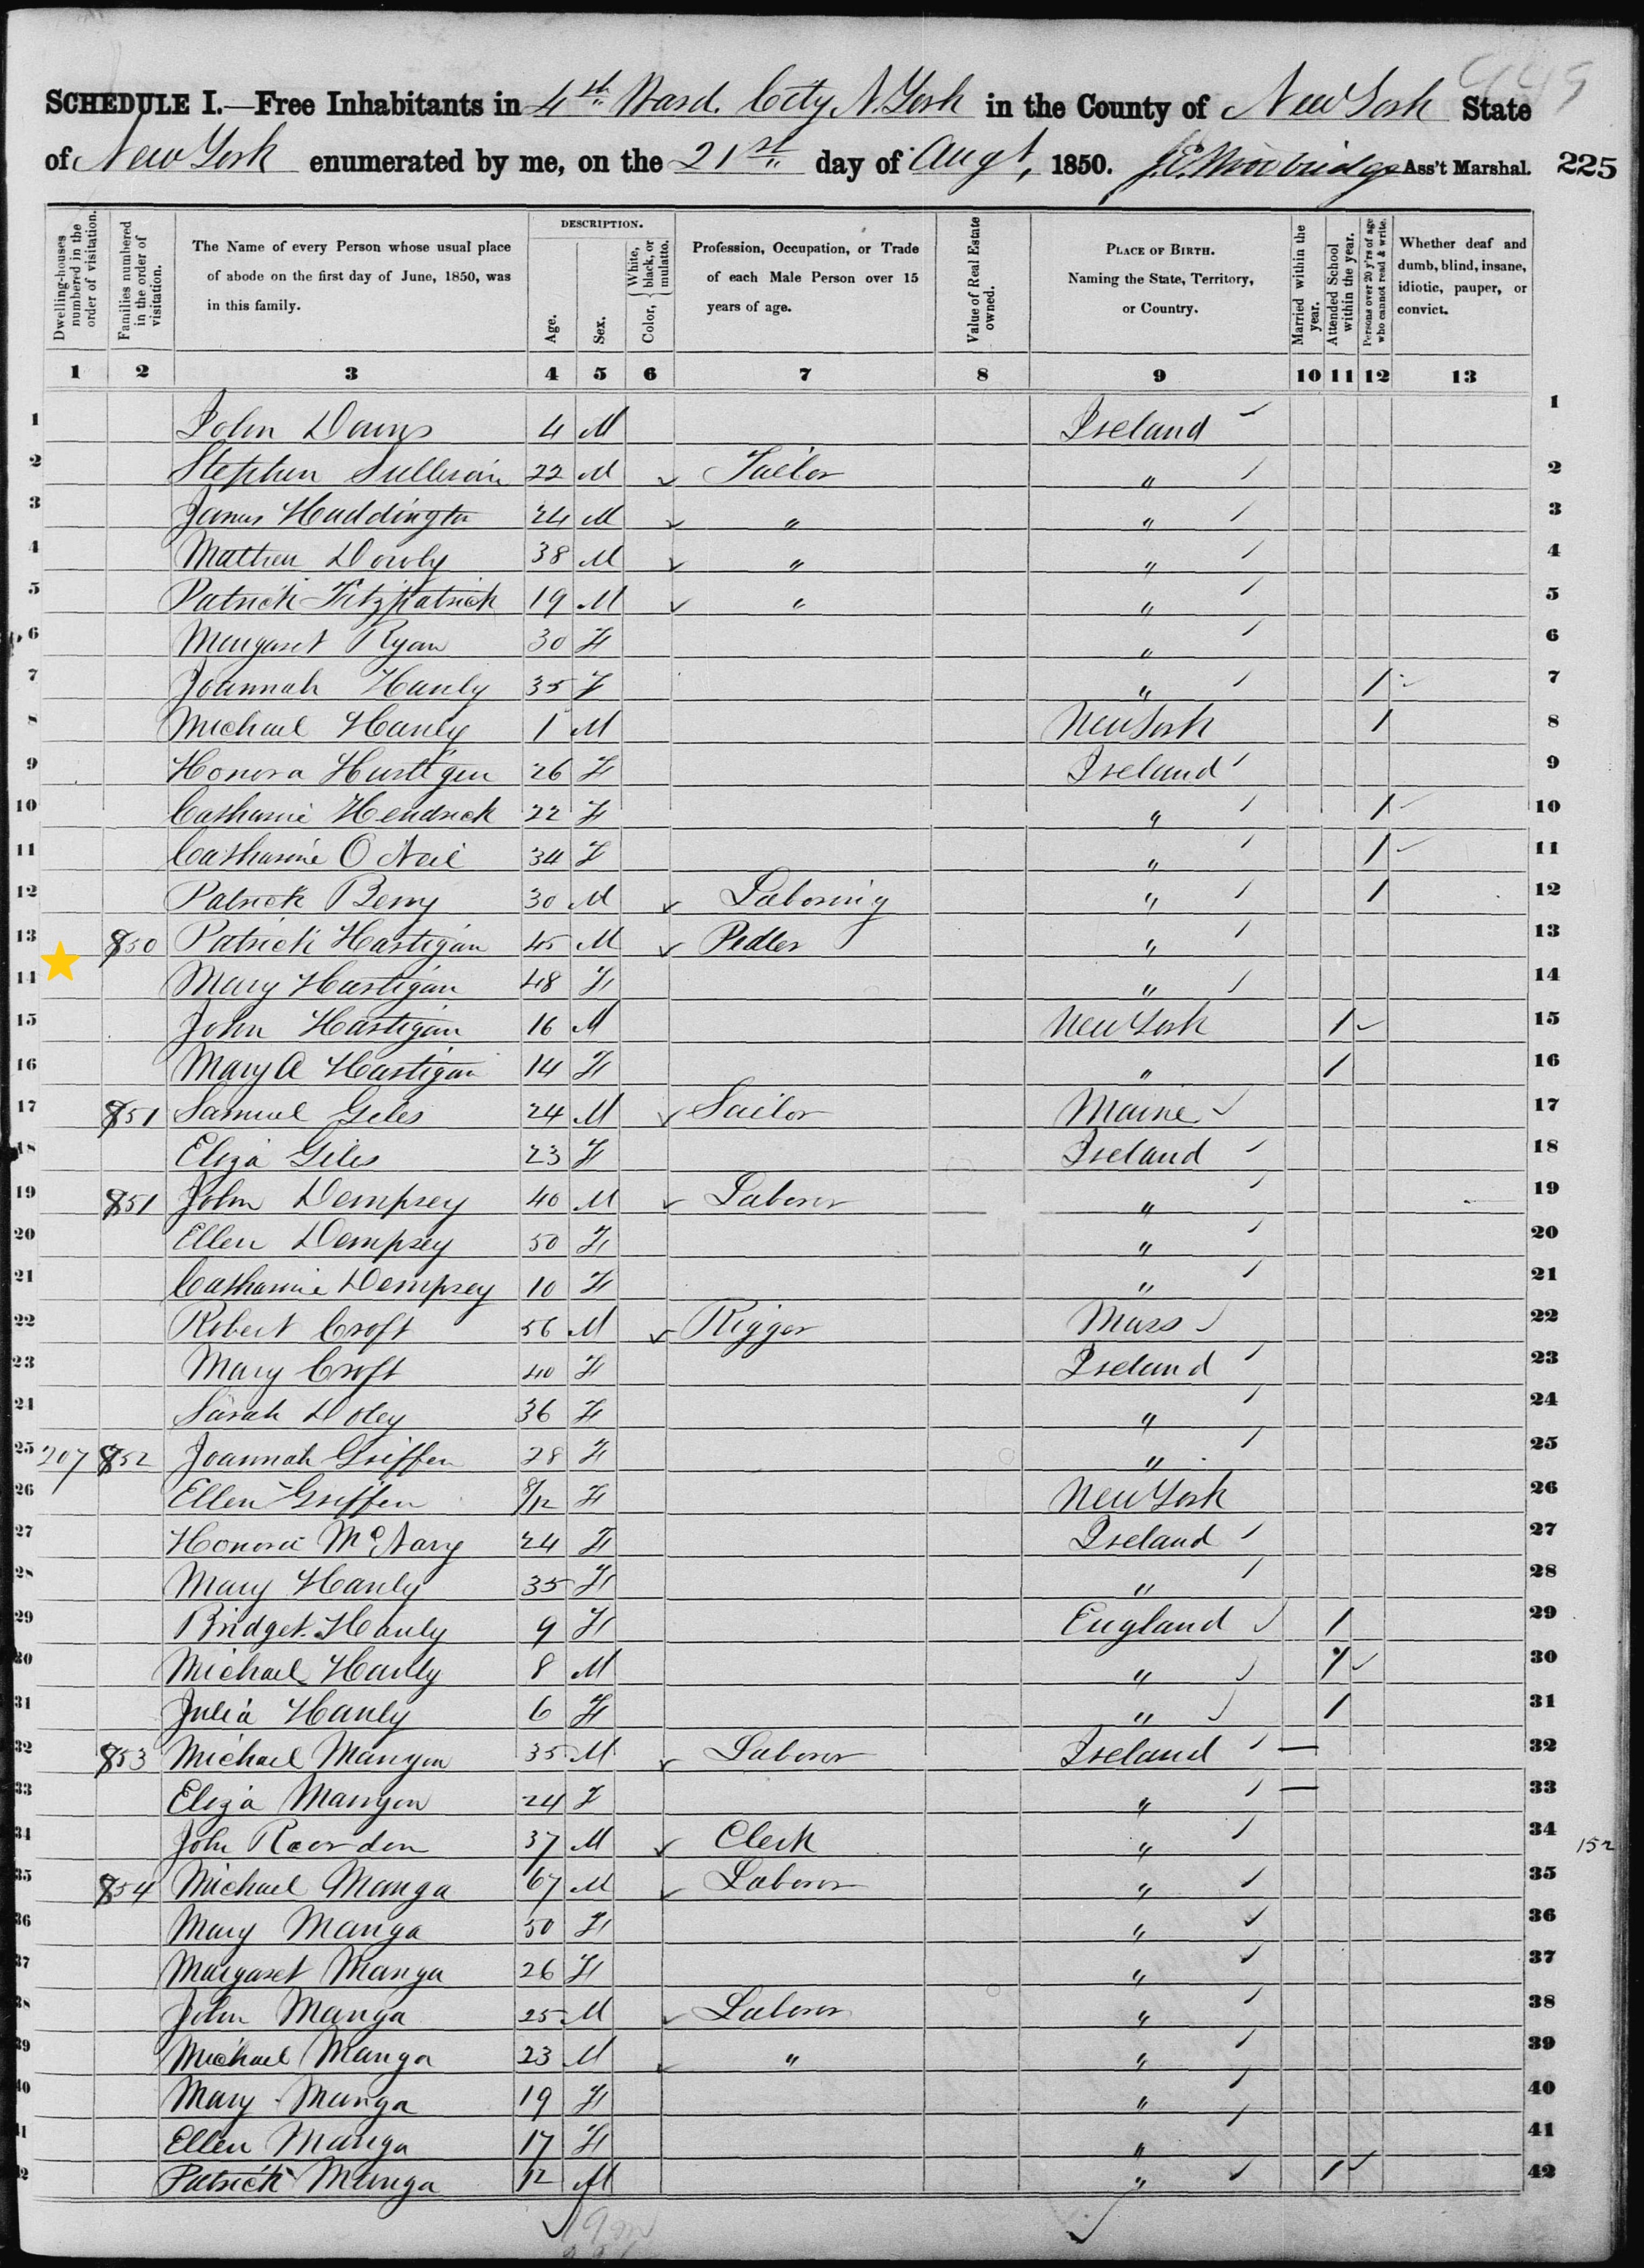 449
SCHEDULE I.—Free Inhabitants in 4th Ward. City N. York in the County of New York State
of New York enumerated by me, on the 21st day of Augt, 1850. Ass't Marshal. 225
Dwelling-houses numbered in the order of visitation.
Families numbered in the order of visitation.
The Name of every Person whose usual place of abode on the first day of June, 1850, was in this family.
DESCRIPTION.
Age.
Sex.
Color, { White, black, or mulatto.
Profession, Occupation, or Trade of each Male Person over 15 years of age.
Value of Real Estate owned.
PLACE OF BIRTH. Naming the State, Territory, or Country.
Married within the year.
Attended School within the year.
Persons over 20 y'rs of age who cannot read & write.
Whether deaf and dumb, blind, insane, idiotic, pauper, or convict.
1 2 3 4 5 6 7 8 9 10 11 12 13
1 John Downs 4 M Ireland ✓ 1
2 Stephen Sullivan 22 M ✓ Tailor " ✓ 2
3 James Huddington 24 M ✓ " " ✓ 3
4 Mathew Dowly 38 M ✓ " " ✓ 4
5 Patrick Fitzpatrick 19 M ✓ " " ✓ 5
6 Margaret Ryan 30 F " ✓ 6
7 Joannah Hanly 35 F " ✓ 1 ✓ 7
8 Michael Hanly 1 M New York 1 8
9 Honora Hartigan 26 F Ireland ✓ 9
10 Catharine Hendrick 22 F " ✓ 1 ✓ 10
11 Catharine O Neil 34 F " ✓ 1 ✓ 11
12 Patrick Berry 30 M ✓ Laboring " ✓ 1 12
13 850 Patrick Hartigan 45 M ✓ Pedler " ✓ 13
14 Mary Hartigan 48 F " ✓ 14
15 John Hartigan 16 M New York 1 ✓ 15
16 Mary A Hartigan 14 F " 1 16
17 851 Samuel Giles 24 M ✓ Sailor Maine ✓ 17
18 Eliza Giles 23 F Ireland ✓ 18
19 851 John Dempsey 40 M ✓ Laborer " ✓ 19
20 Ellen Dempsey 50 F " ✓ 20
21 Catharine Dempsey 10 F " ✓ 21
22 Robert Croft 56 M ✓ Rigger Mass ✓ 22
23 Mary Croft 40 F Ireland ✓ 23
24 Sarah Doley 36 F " ✓ 24
25 207 852 Joannah Griffen 28 F " ✓ 25
26 Ellen Griffen 8/12 F New York 26
27 Honora McNary 24 F Ireland ✓ 27
28 Mary Hanly 35 F " ✓ 28
29 Bridget Hanly 9 F England ✓ 1 29
30 Michael Hanly 8 M " ✓ 1 ✓ 30
31 Julia Hanly 6 F " ✓ 1 31
32 853 Michael Mangen 35 M ✓ Laborer Ireland ✓ — 32
33 Eliza Mangen 24 F " ✓ — 33
34 John Reordon 37 M ✓ Clerk " ✓ 34 152
35 854 Michael Manga 67 M ✓ Laborer " ✓ 35
36 Mary Manga 50 F " ✓ 36
37 Margaret Manga 26 F " ✓ 37
38 John Manga 25 M ✓ Laborer " ✓ 38
39 Michael Manga 23 M ✓ " " ✓ 39
40 Mary Manga 19 F " ✓ 40
41 Ellen Manga 17 F " ✓ 41
42 Patrick Manga 12 M " ✓ 1 ✓ 42